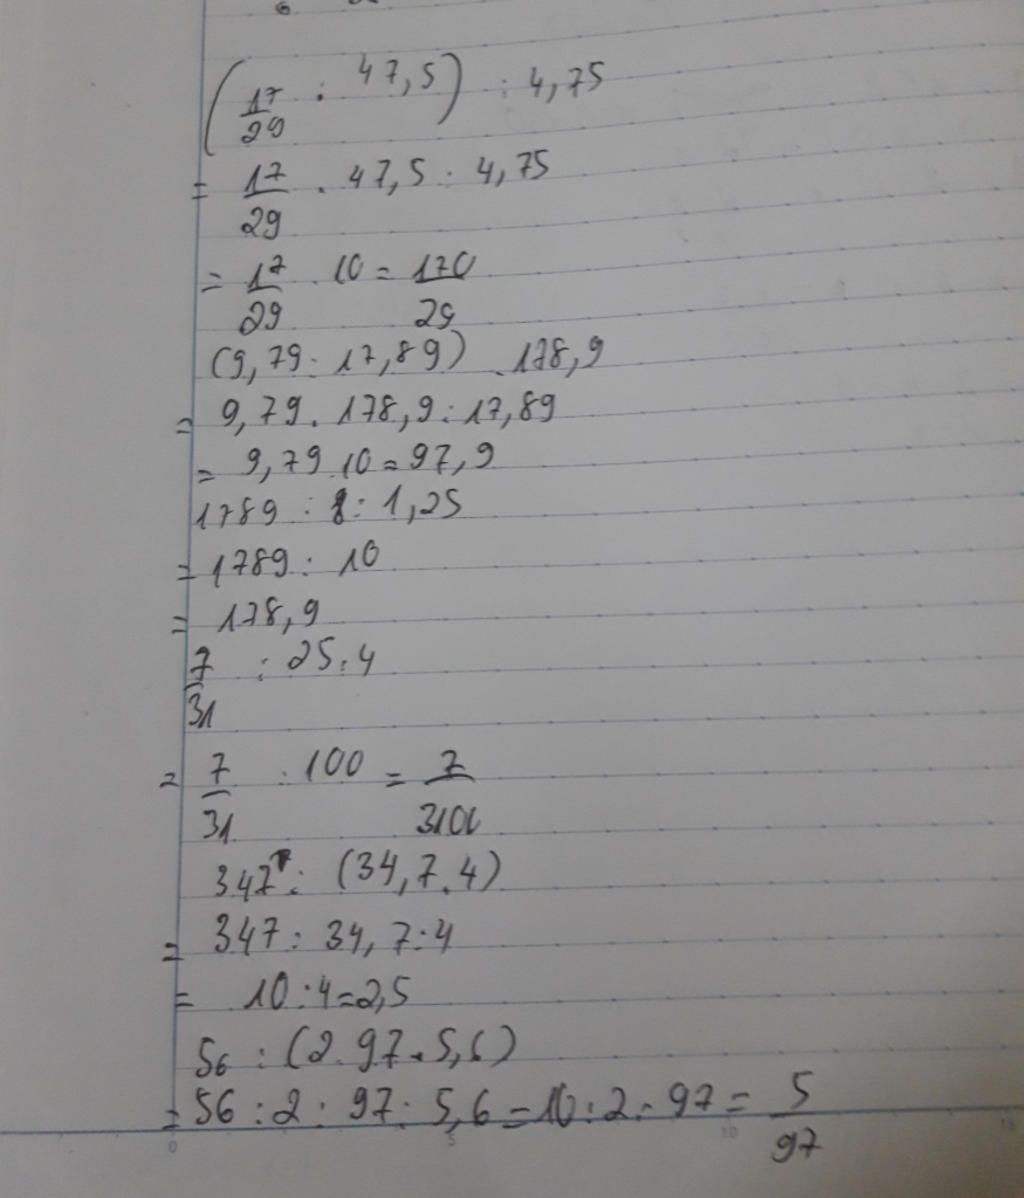 (17/29 : 47,5) : 4,75
= 17/29 . 47,5 : 4,75
= 17/29 . 10 = 170/29
(9,79 : 17,89) . 178,9
= 9,79 . 178,9 : 17,89
= 9,79 10 = 97,9
1789 : 8 : 1,25
= 1789 : 10
= 178,9
7/31 : 25 : 4
= 7/31 : 100 = 7/3100
347 : (34,7 . 4)
= 347 : 34,7 : 4
= 10 : 4 = 2,5
56 : (2 . 97 . 5,6)
= 56 : 2 : 97 : 5,6 = 10 : 2 : 97 = 5/97